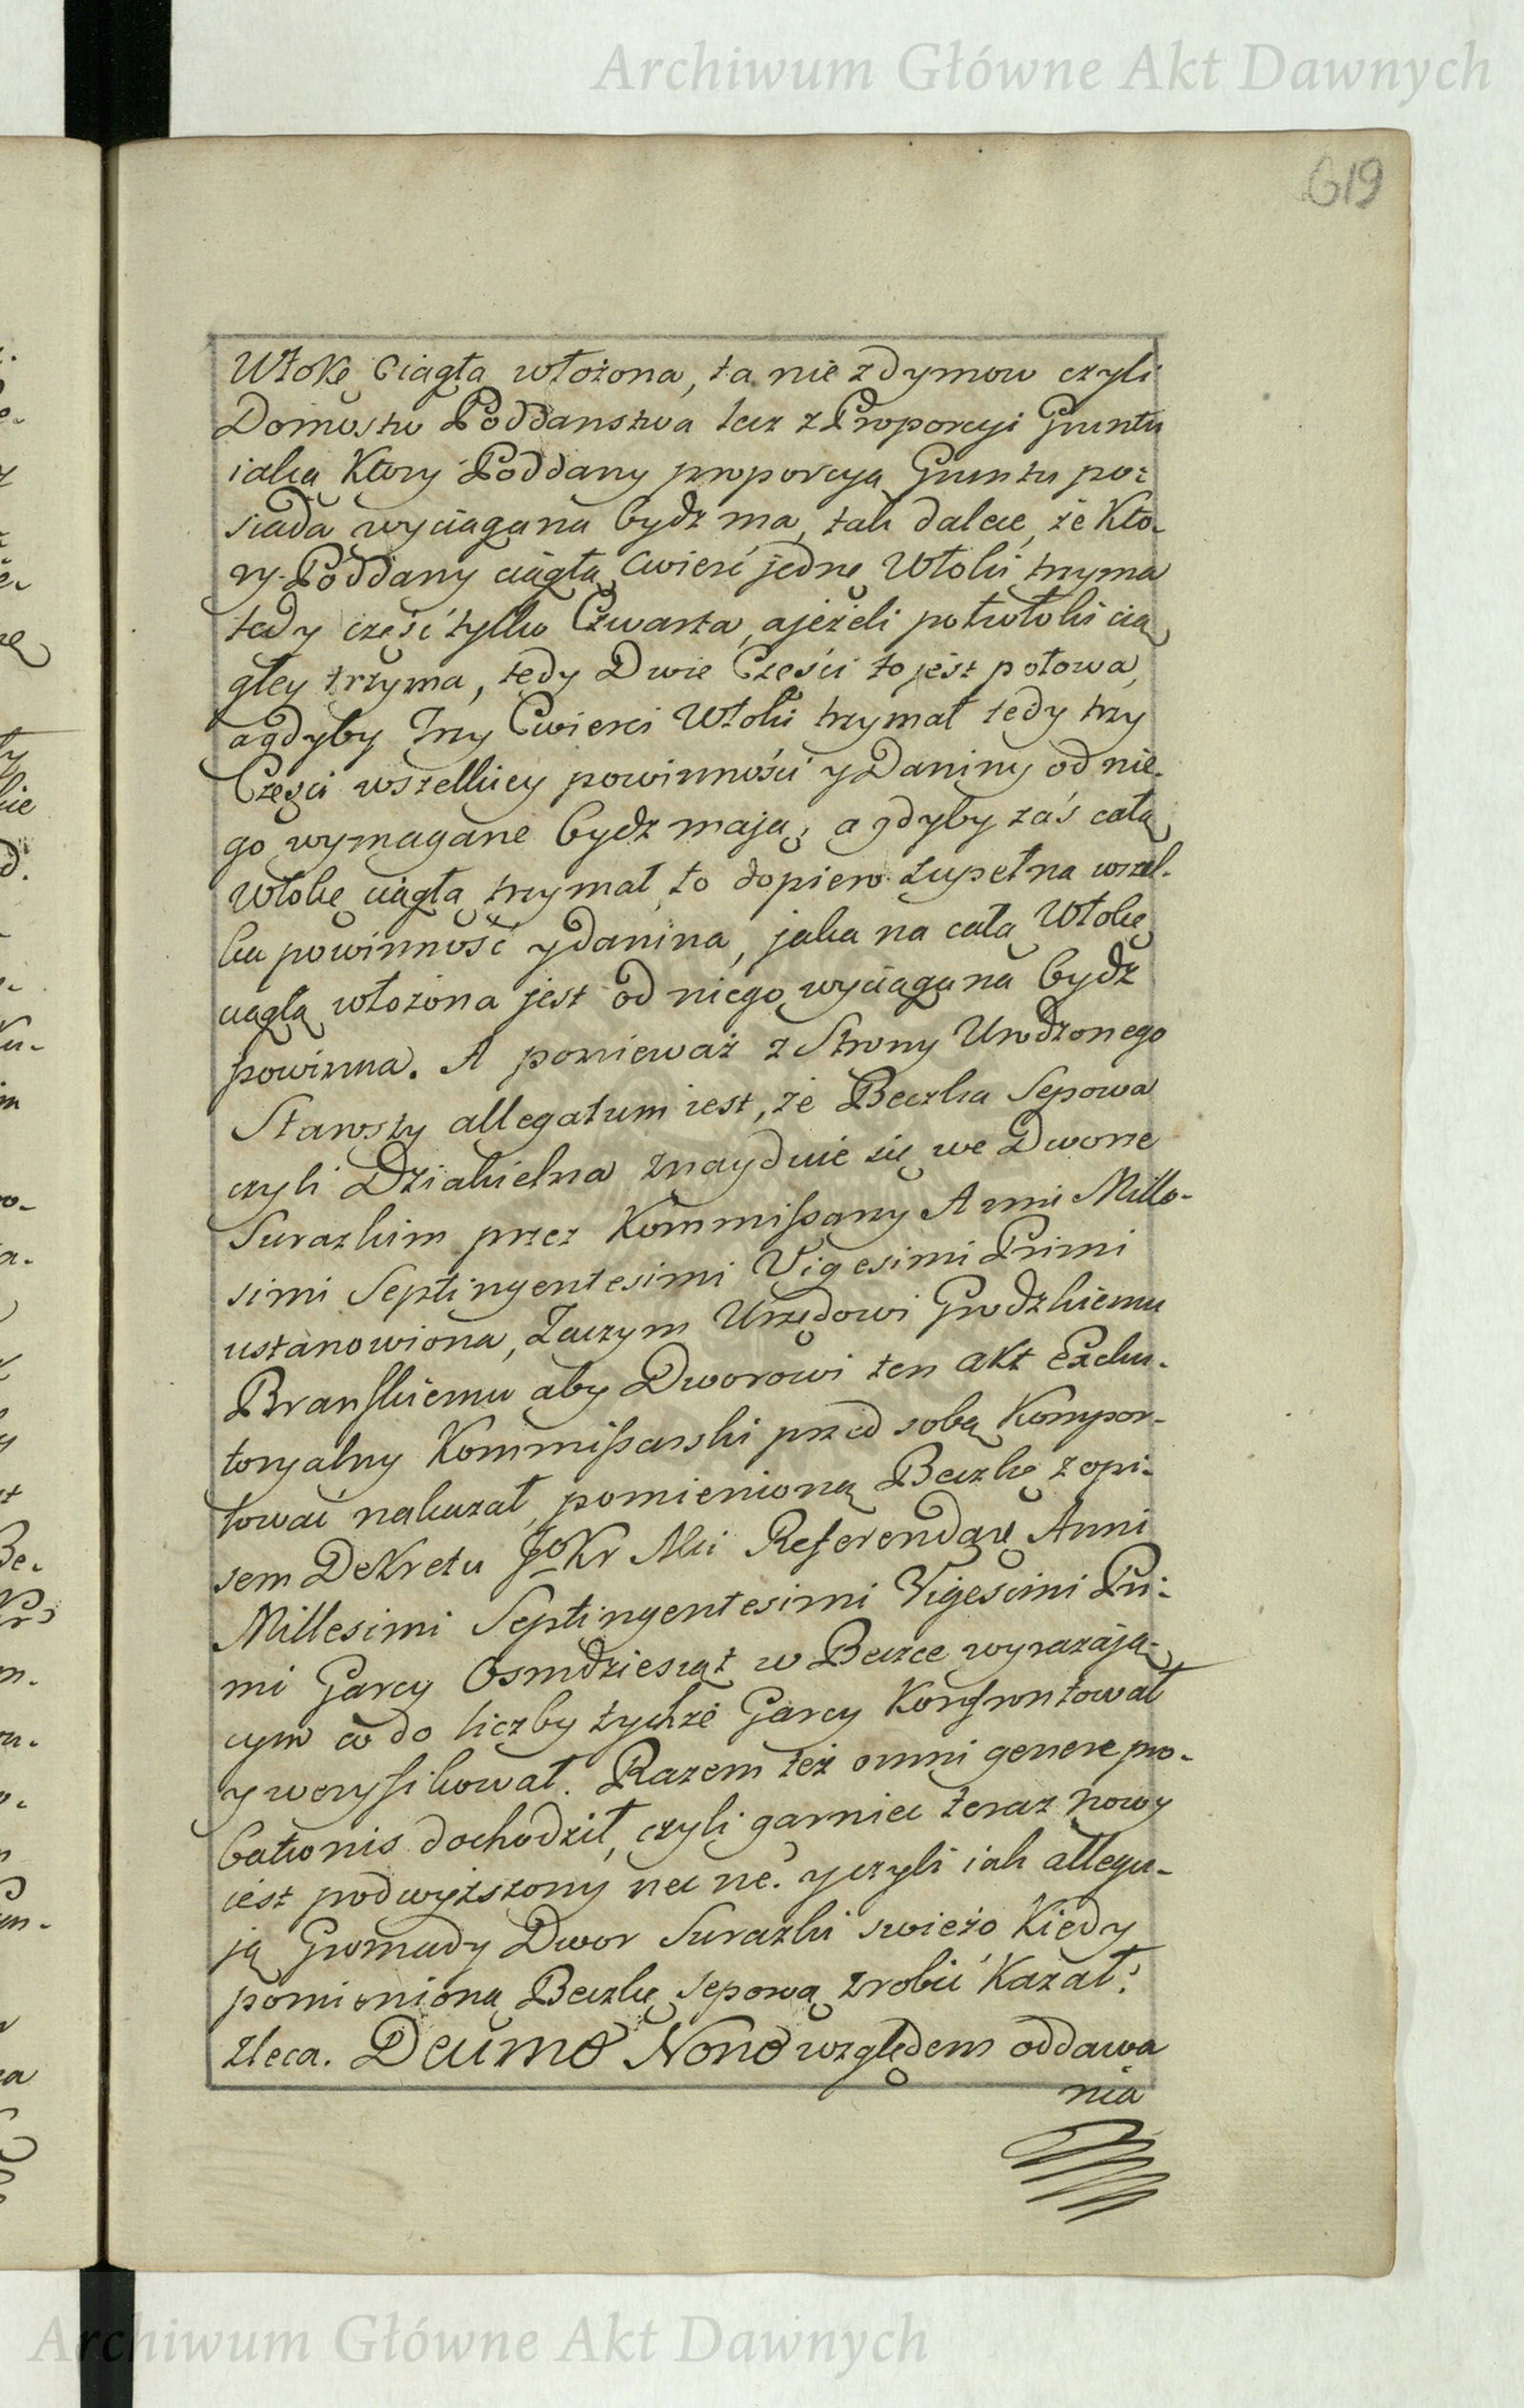 Archiwum Główne Akt Dawnych
619
Włokę Ciągłą włożona, ta nie z dymow czyli
Domostw Poddanstwa lecz z Proporcyi Gruntu
iaką Ktory Poddany proporcyą Gruntu po-
siada wyciągana bydz ma, tak dalece, że Kto-
ry Poddany ciągłą Cwierć jednę Włoki trzyma
tedy część tylko Czwarta, a jeżeli pułwłoki cią
głey trzyma, tedy Dwie Części to jest połowa,
a gdyby Trzy Cwierci Włoki trzymał tedy trzy
Części wszelkiey powinności y Daniny od nie-
go wymagane bydz mają, a gdyby zaś całą
Włokę ciągłą trzymał, to dopiero zupełna wszel-
ka powinność y danina, jaka na całą Włokę
ciągłą włożona jest od niego wyciągana bydz
powinna. A ponieważ z Strony Urodzonego
Starosty allegatum iest, że Beczka Sepowa
czyli Dziakielna znayduie się we Dworze
Surazkim przez Kommissarzy Anni Mille-
simi Septingentesimi Vigesimi Primi
ustanowiona, Zaczym Urzędowi Grodzkiemu
Branskiemu aby Dworowi ten akt Exeku-
toryalny Kommissarski przed sobą Kompor-
tować nakazał, pomienioną Beczkę z opi-
sem Dekretu JoKr Mci Referendarę Anni
Millesimi Septingentesimi Vigesimi Pri-
mi Garcy Osmdziesiąt w Beczce wyrażają-
cym co do liczby tychże Garcy Konfrontował
y weryfikował. Razem też omni genere pro-
bationis dochodził, czyli garniec teraz nowy
iest podwyższony nec ne? y czyli iak allegu-
ją Gromady Dwor Surazki swieżo Kiedy
pomienioną Beczkę sepową zrobić Kazał?
zleca. Decimo Nono względem oddawa
nia
Archiwum Główne Akt Dawnych